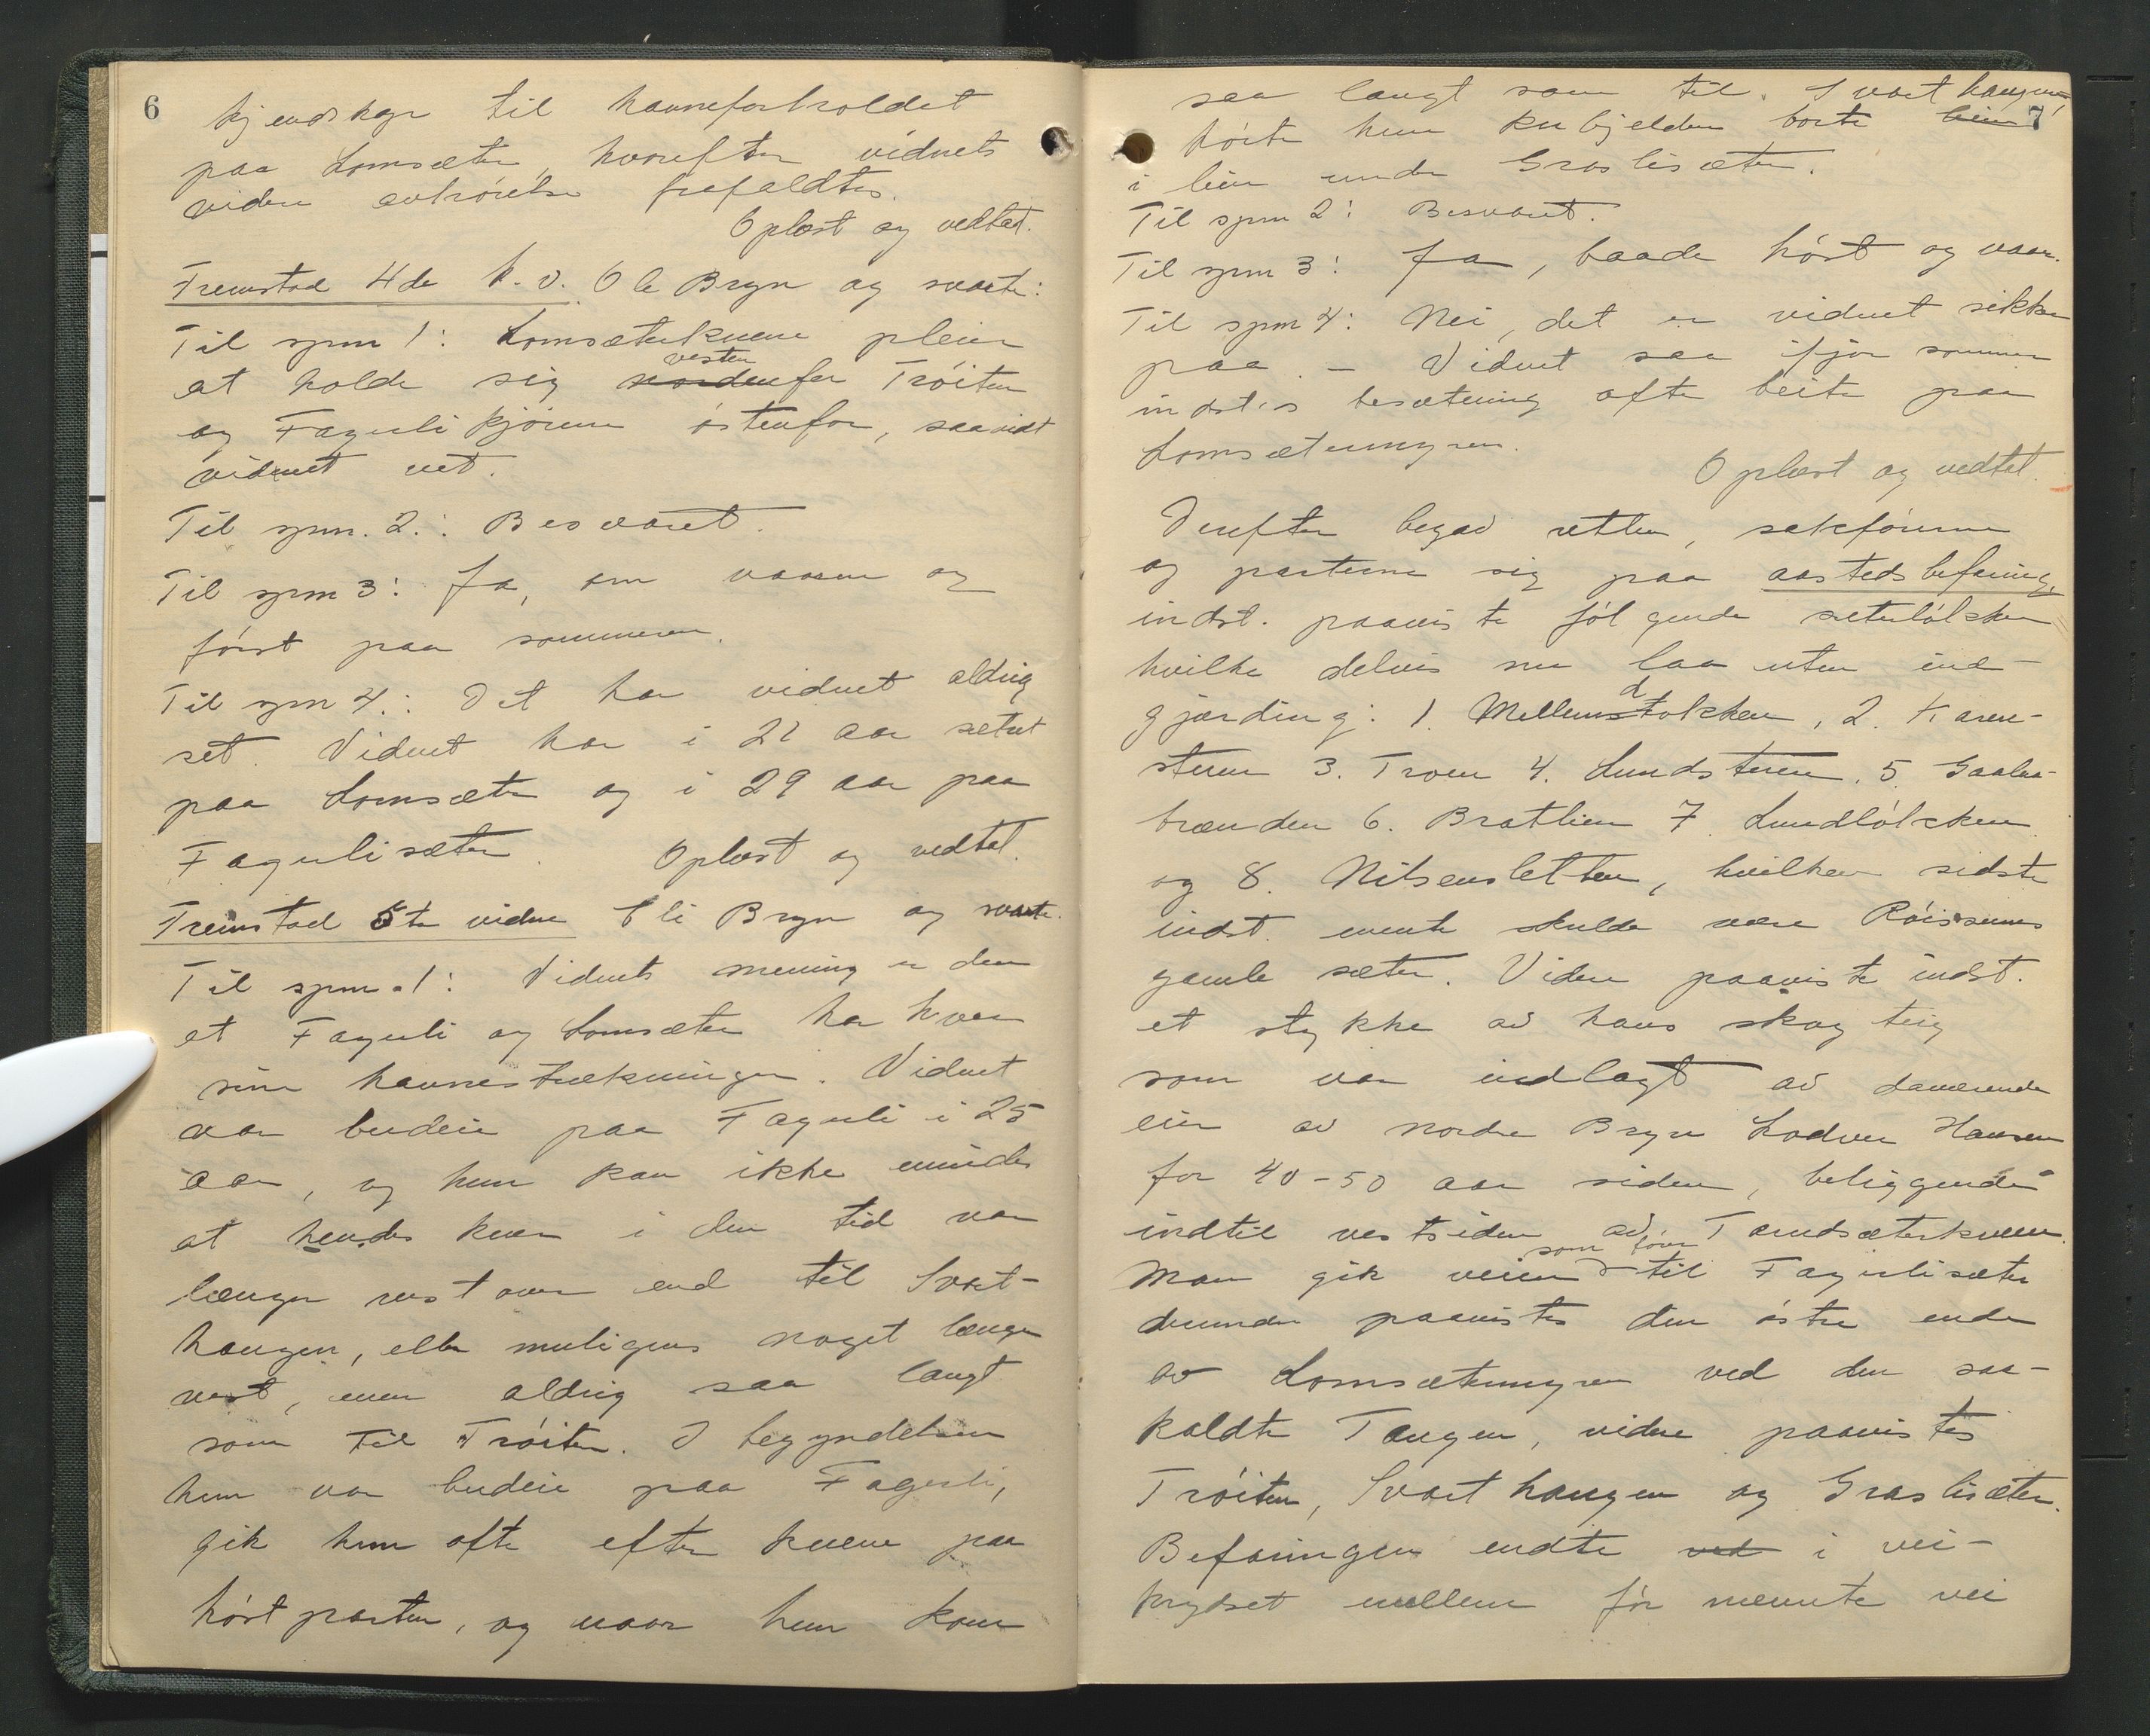 6
kjendskap til havneforholdet
paa Lomsæter, hvorefter vidnets
videre avhørelse frafaldtes.
Oplæst og vedtat.
Fremstod 4de h.v. Ole Bryn og svarte:
Til spm 1: Lomsæterkuene pleier
at holde sig nordenfor vesten Trøiten
og Fagerlikjørene østenfor, saavidt
vidnet vet.
Til spm. 2.: Besvaret.
Til spm 3: Ja, om vaaren og
først paa sommeren.
Til spm 4.: Det har vidnet aldrig
set. Vidnet har i 21 aar sætret
paa Lomsæter og i 29 aar paa
Fagerlisæter. Oplæst og vedtat.
Fremstod 5te vidne Eli Bryn og svarte.
Til spm. 1: Vidnets mening er den
at Fagerli og Lomsæter har hver
sine havnestrækninger. Vidnet
var budeie paa Fagerli i 25
aar, og hun kan ikke mindes
at hendes kuer i den tid var
længer vestover end til Svart-
haugen, eller muligens noget længer
vest, men aldrig saa langt
som til Trøiten. I begyndelsen
hun var budeie paa Fagerli,
gik hun ofte efter kuene paa
høstparten, og naar hun kom
7
saa langt som til Svarthaugen,
hørte hun kubjelden borte lien
i lien under Graslisæter.
Til spm 2: Besvaret.
Til spm 3: Ja, baade høst og vaar.
Til spm 4: Nei, det er vidnet sikker
paa. - Vidnet saa ifjor sommer
indst.s besætning ofte beite paa
Lomsætermyren.
Oplæst og vedtat.
Derefter begav retten, sakførerne
og parterne sig paa aastedsbefaring,
indst. paaviste følgende seterløkker
hvilke delvis nu laa uten ind-
gjærding: 1. Mellemstolkken, 2. Karen-
steren 3. Troen 4. Lundsteren. 5. Gaalaa-
brænden 6. Bratlien 7. Lundløkken
og 8. Nilsensletten, hvilken sidste
indst. mente skulde være Røissens
gamle sæter. Videre paaviste indst.
et stykke av hans skogteig
som var indlagt av daværende
eier av nordre Bryn Lodver Hansen
for 40-50 aar siden, beliggende
indtil vestsiden av Tandsæterkvern.
Man gik veien som fører til Fagerlisæter
derunder paavistes den østre ende
av Lomsætermyren ved den saa-
kaldte Tangen, videre paavistes
Trøiten, Svarthaugen og Graslisæter.
Befaringen endte ved i vei-
krydset mellem før nævnte vei